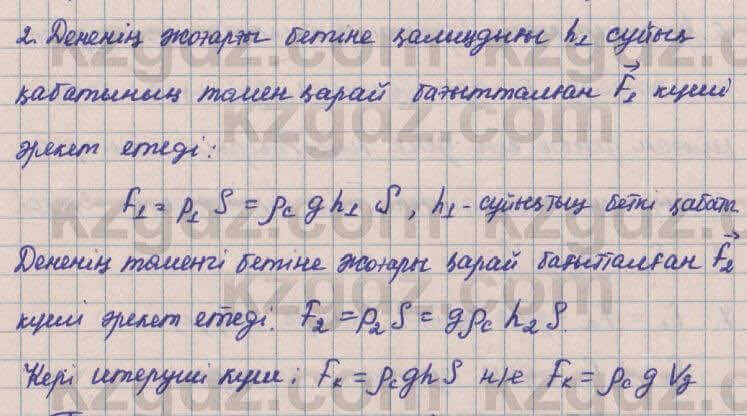 2. Дененің жоғарғы бетіне қалыңдығы h₁ сұйық
қабатының төмен қарай бағытталған F⃗₁ күші
әрекет етеді:
F₁ = p₁ S = ρc g h₁ S, h₁ - сұйықтың беткі қабат
Дененің төменгі бетіне жоғары қарай бағытталған F⃗₂
күші әрекет етеді. F₂ = p₂ S = g ρc h₂ S.
Кері итеруші күш: Fк = ρc g h S н/е Fк = ρc g Vд
kzgdz.com